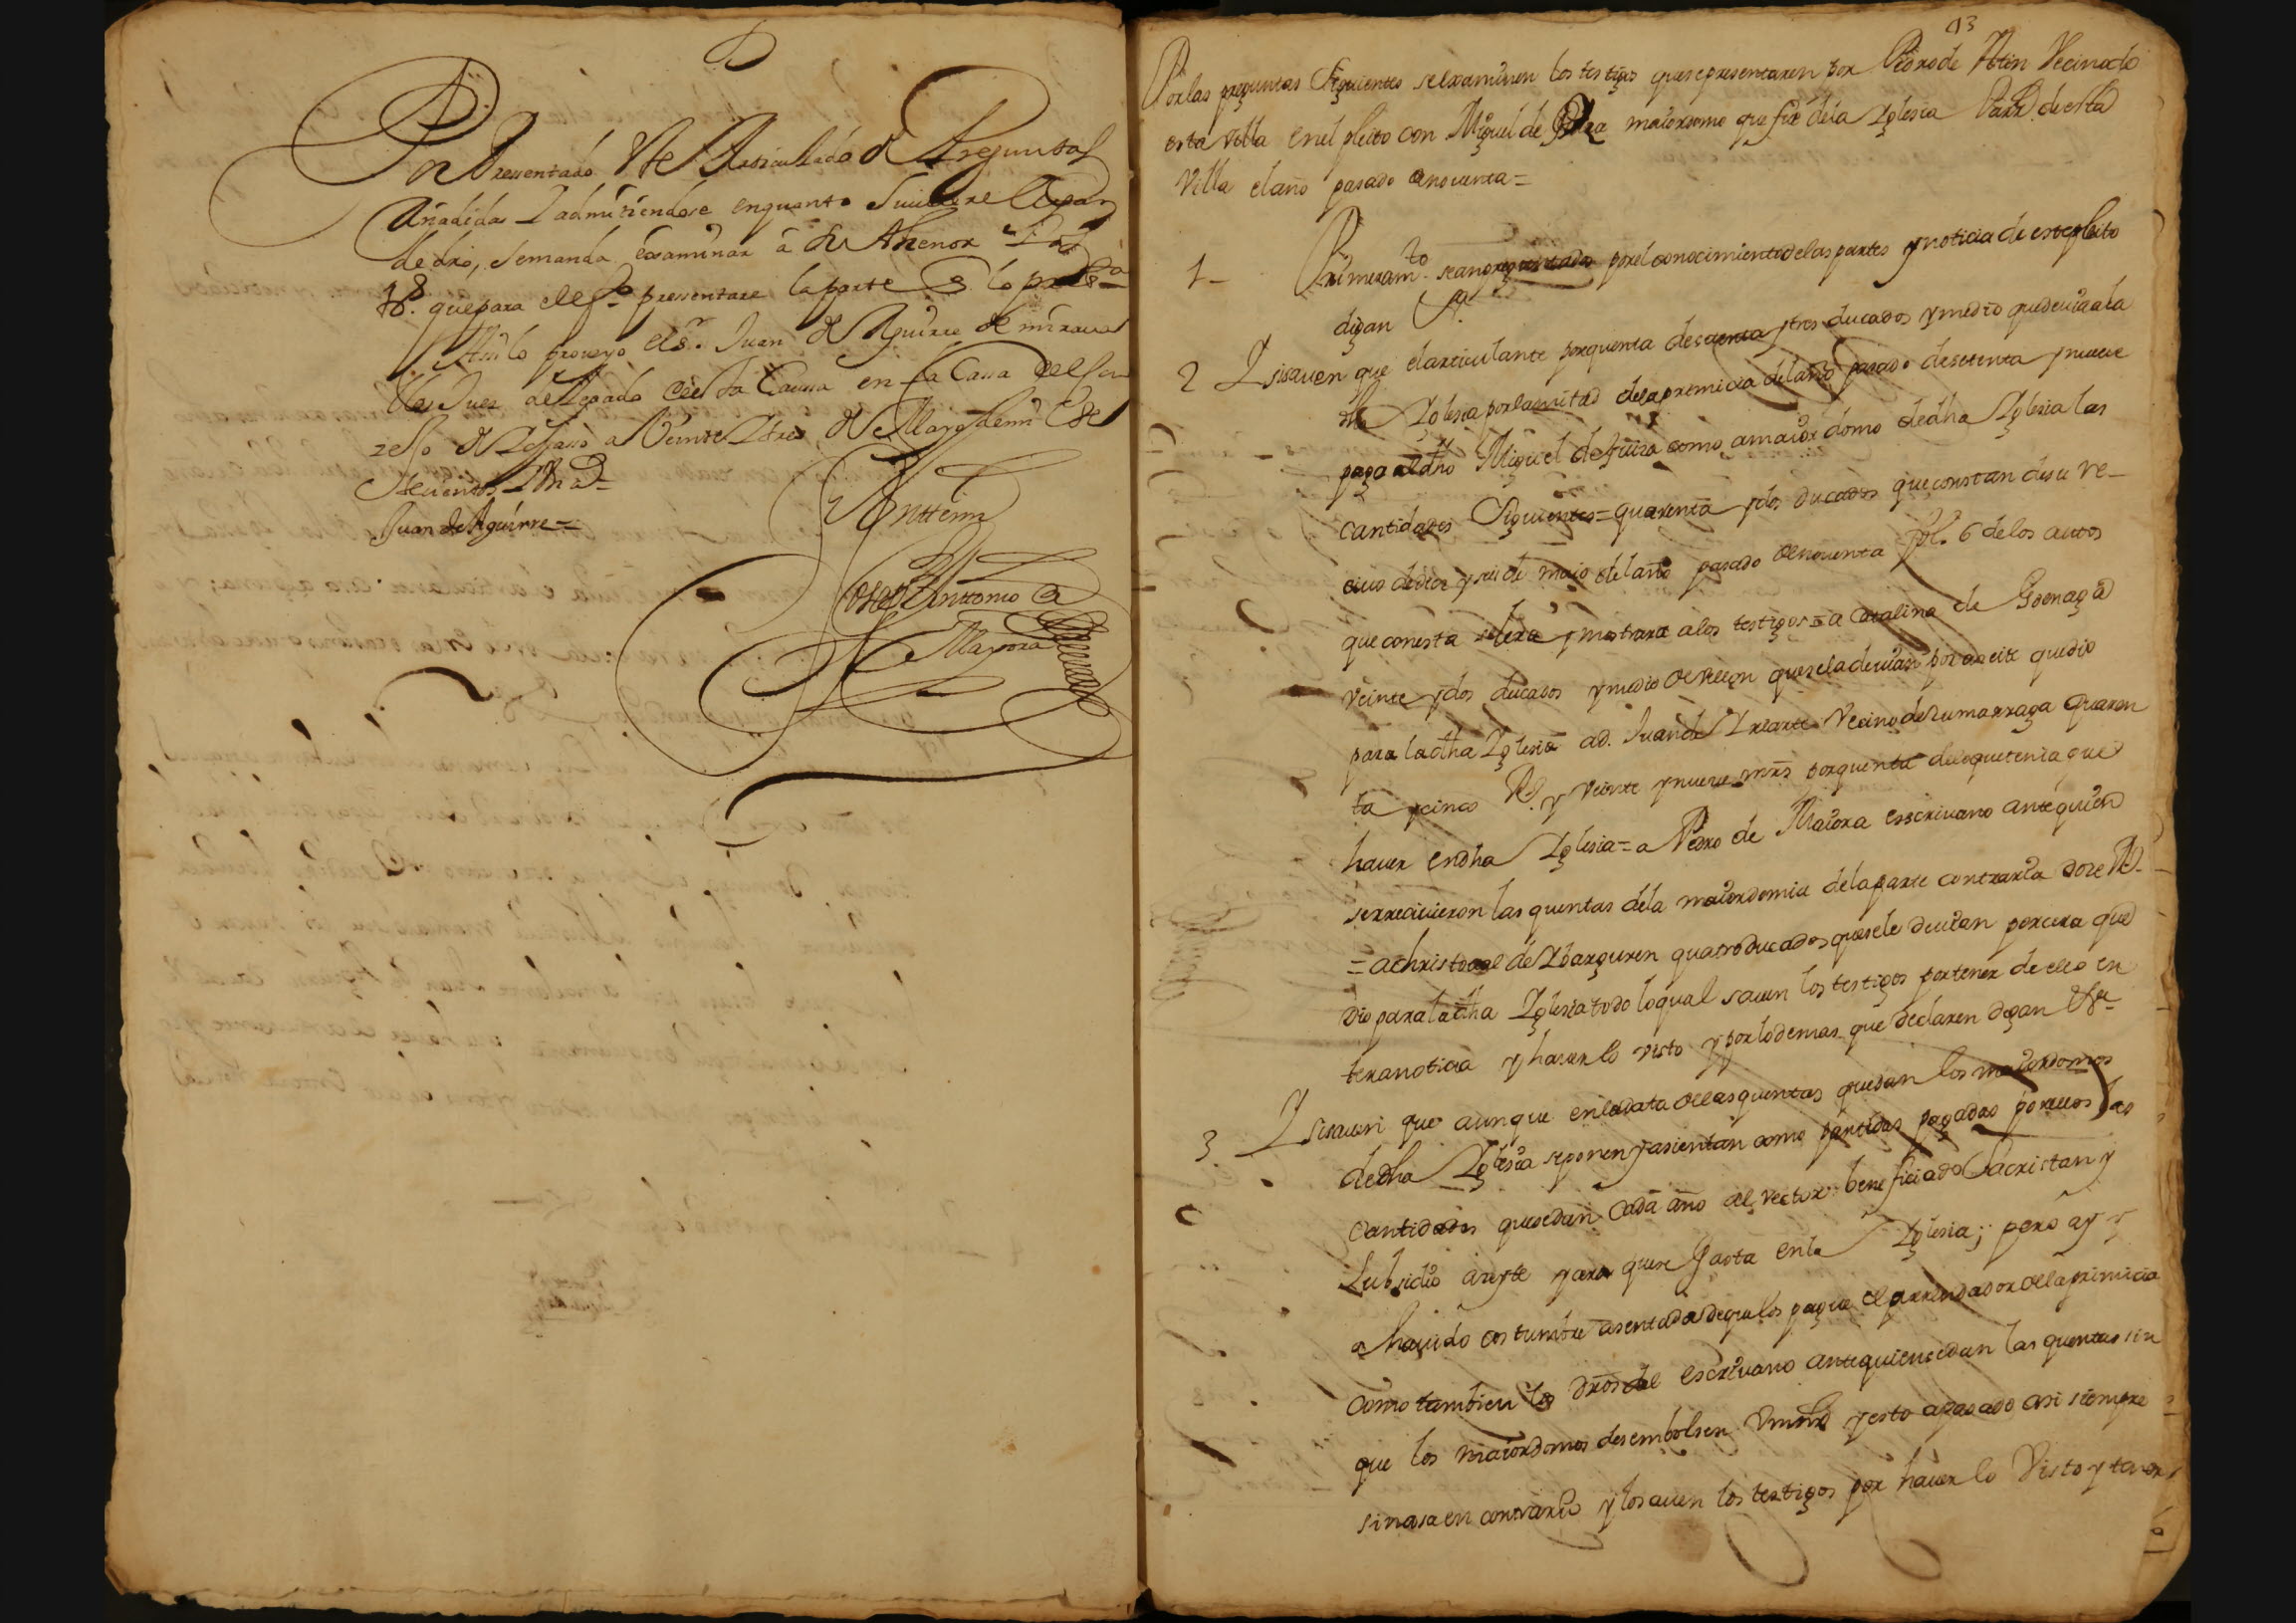 Por Presentado Este Articulado de Preguntas
Añadidas Y admitiendose enquanto Huuiere Lugar
dedro, semanda examinar â su thenor
tts. quepara elefto. presentare laparte
Assi lo proueyo el sr. Juan de Aguirre
Juez delegado en esta Causa en la Cassa del Con
zejo de a Veinte Ytres de Mayo de mil
Juan de Aguirre=
Anttemi
Joseph Anttonio de
Mayora
93
Por las preguntas Siguientes se examinen los testigos que se presentaren por Pedro de Vecino de
esta Villa en el pleito con Miguel de maiordomo que fue de la Yglesia Parrl. de esta
Villa el año pasado de nouenta=
1 Primeramto. sean preguntados por el conocimiento de las partes y noticia de este pleito
digan &a.
2 Y si sauen que el articulante por quenta de y tres ducados y medio que deuia a la
dha Yglesia por la mitad de la premicia del año pasado de setenta y nueue
pago al dho Miguel de como a maiordomo de dha Yglesia las
cantidades Siguientes= quarenta y dos Ducados que constan de su re-
ciuo de diez y seis de maio del año pasado de nouenta fol. 6 de los autos
que con esta se lera y mostrara a los testigos= a Catalina de Goenaga
veinte y dos ducados y medio de vellon que se la deuian por aceite que dio
para la dha Yglesia a D. Juan de Yriarte Vecino de Zumarraga quaren
ta y cinco Rs. y veinte y nueue mrs por quenta de lo que tenia que
hauer en dha Yglesia= a Pedro de Maiora escriuano ante quien
se rreciuieron las quentas de la maiordomia de la parte contraria doze Rs.
= a christoual de Ybarguren quatro ducados que se le deuian por cera que
dio para la dha Yglesia todo lo qual sauen los testigos por tener de ello en
tera noticia y hauerlo visto y por lo demas que declaren digan &a
3 Y si sauen que aunque en la data de las quentas que dan los maiordomos
de dha Yglesia se ponen y asientan como partidas pagadas por ellos las
cantidades que se dan cada año al Rector beneficiado Sacristan y
Subsidio azeyte y cera que se gasta en la Yglesia; pero ay y
a hauido costumbre asentada de que los pague el arrendador de la primicia
como tambien los drõs del escriuano ante quien se dan las quentas sin
que los maiordomos desembolsen y esto a pasado asi siempre
sin cosa en contrario y lo sauen los testigos por hauerlo Visto y